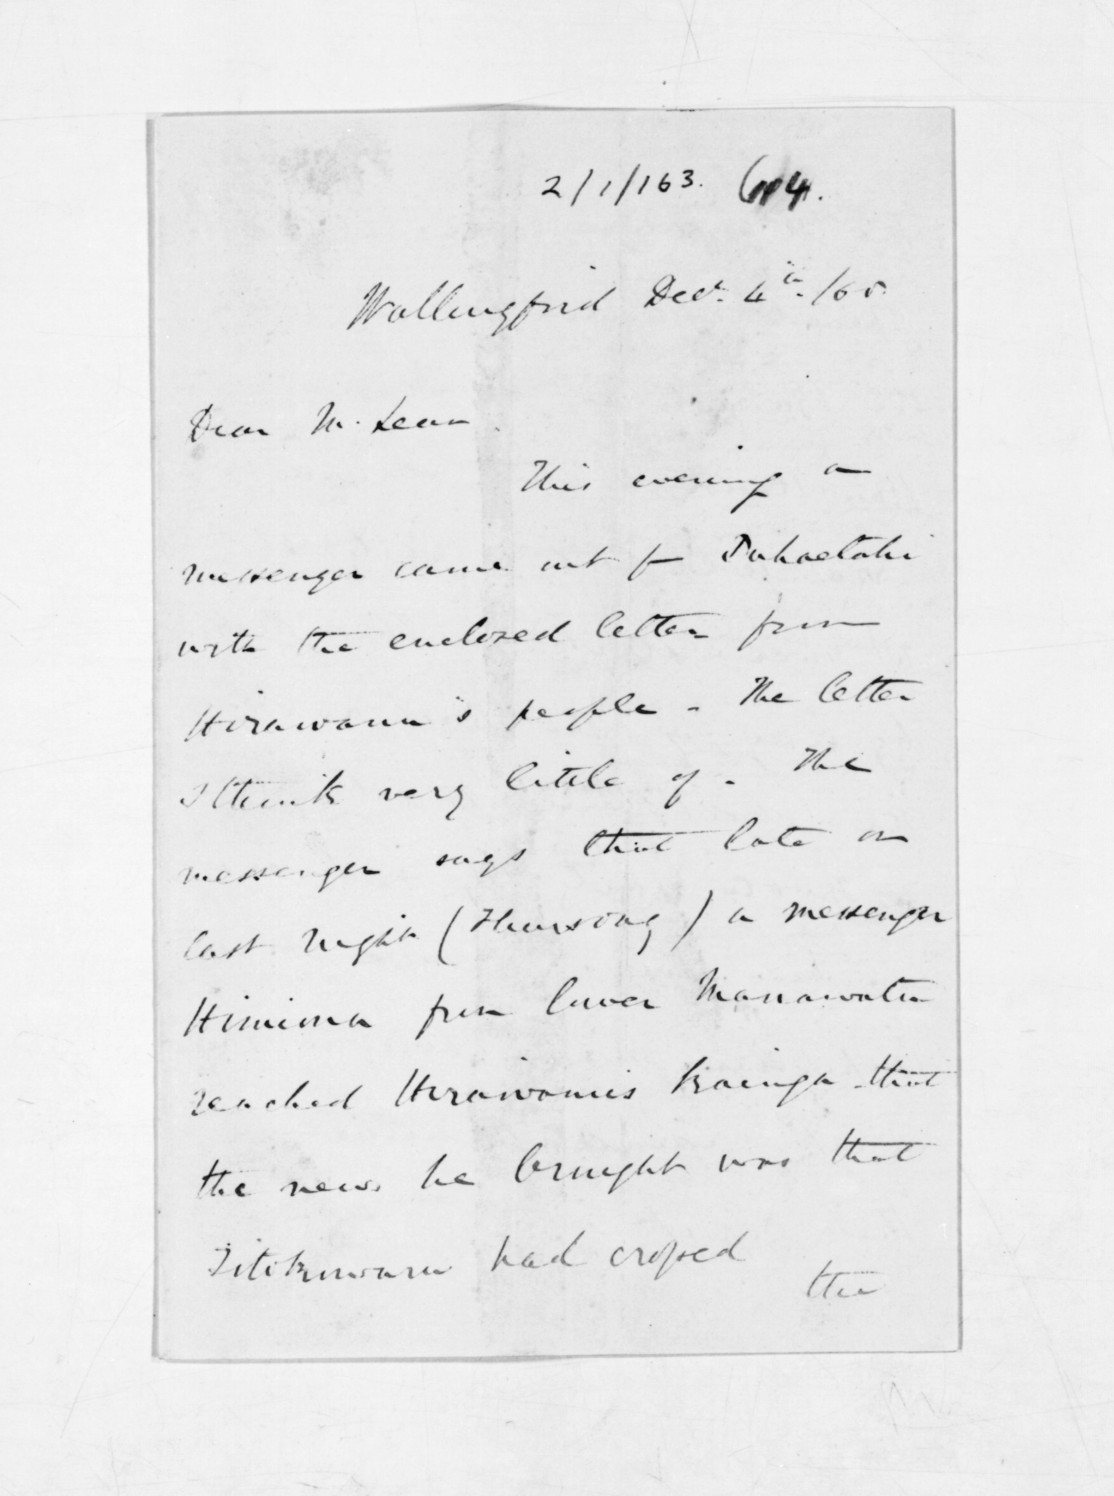 2/1/163.
Wallingford Decr. 4th. /68.
Dear McLean
This evening a
messenger came out fm
with the enclosed letter from
Hirawanu's people - The letter
I think very little of - The
messenger says that late on
last night (Thursday) a messenger
from lower Manawatu
reached Hirawanus Kainga that
the news he brought was that
Titikuwaru had crossed
the